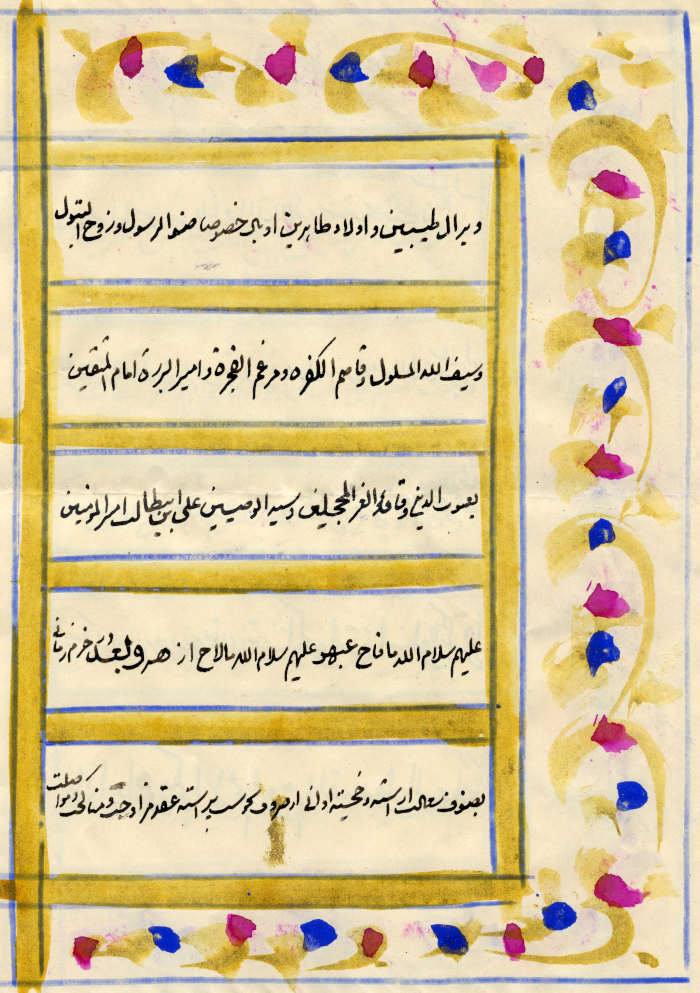 و بر ال طیبین و اولاد طاهرین او بالی خصوصا صنو الرسول و زوج البتول
و سیف الله المسلول و قاصم الکفره و مرغم الفجرة و امیر البررة امام المتقین
یعسوب الدین و قائد الغر المحجلین و سید الوصیین علی بن ابیطالب امیر المؤمنین
علیهم سلام الله ما فاح عبهر و علیهم سلام الله ما لاح از هر و بعد در خرم زمانی
بصنوف سعادت اراسته و خجسته اوانی از صروف نحوست پیراسته عقد مزاوجت و مناکحت و مواصلت